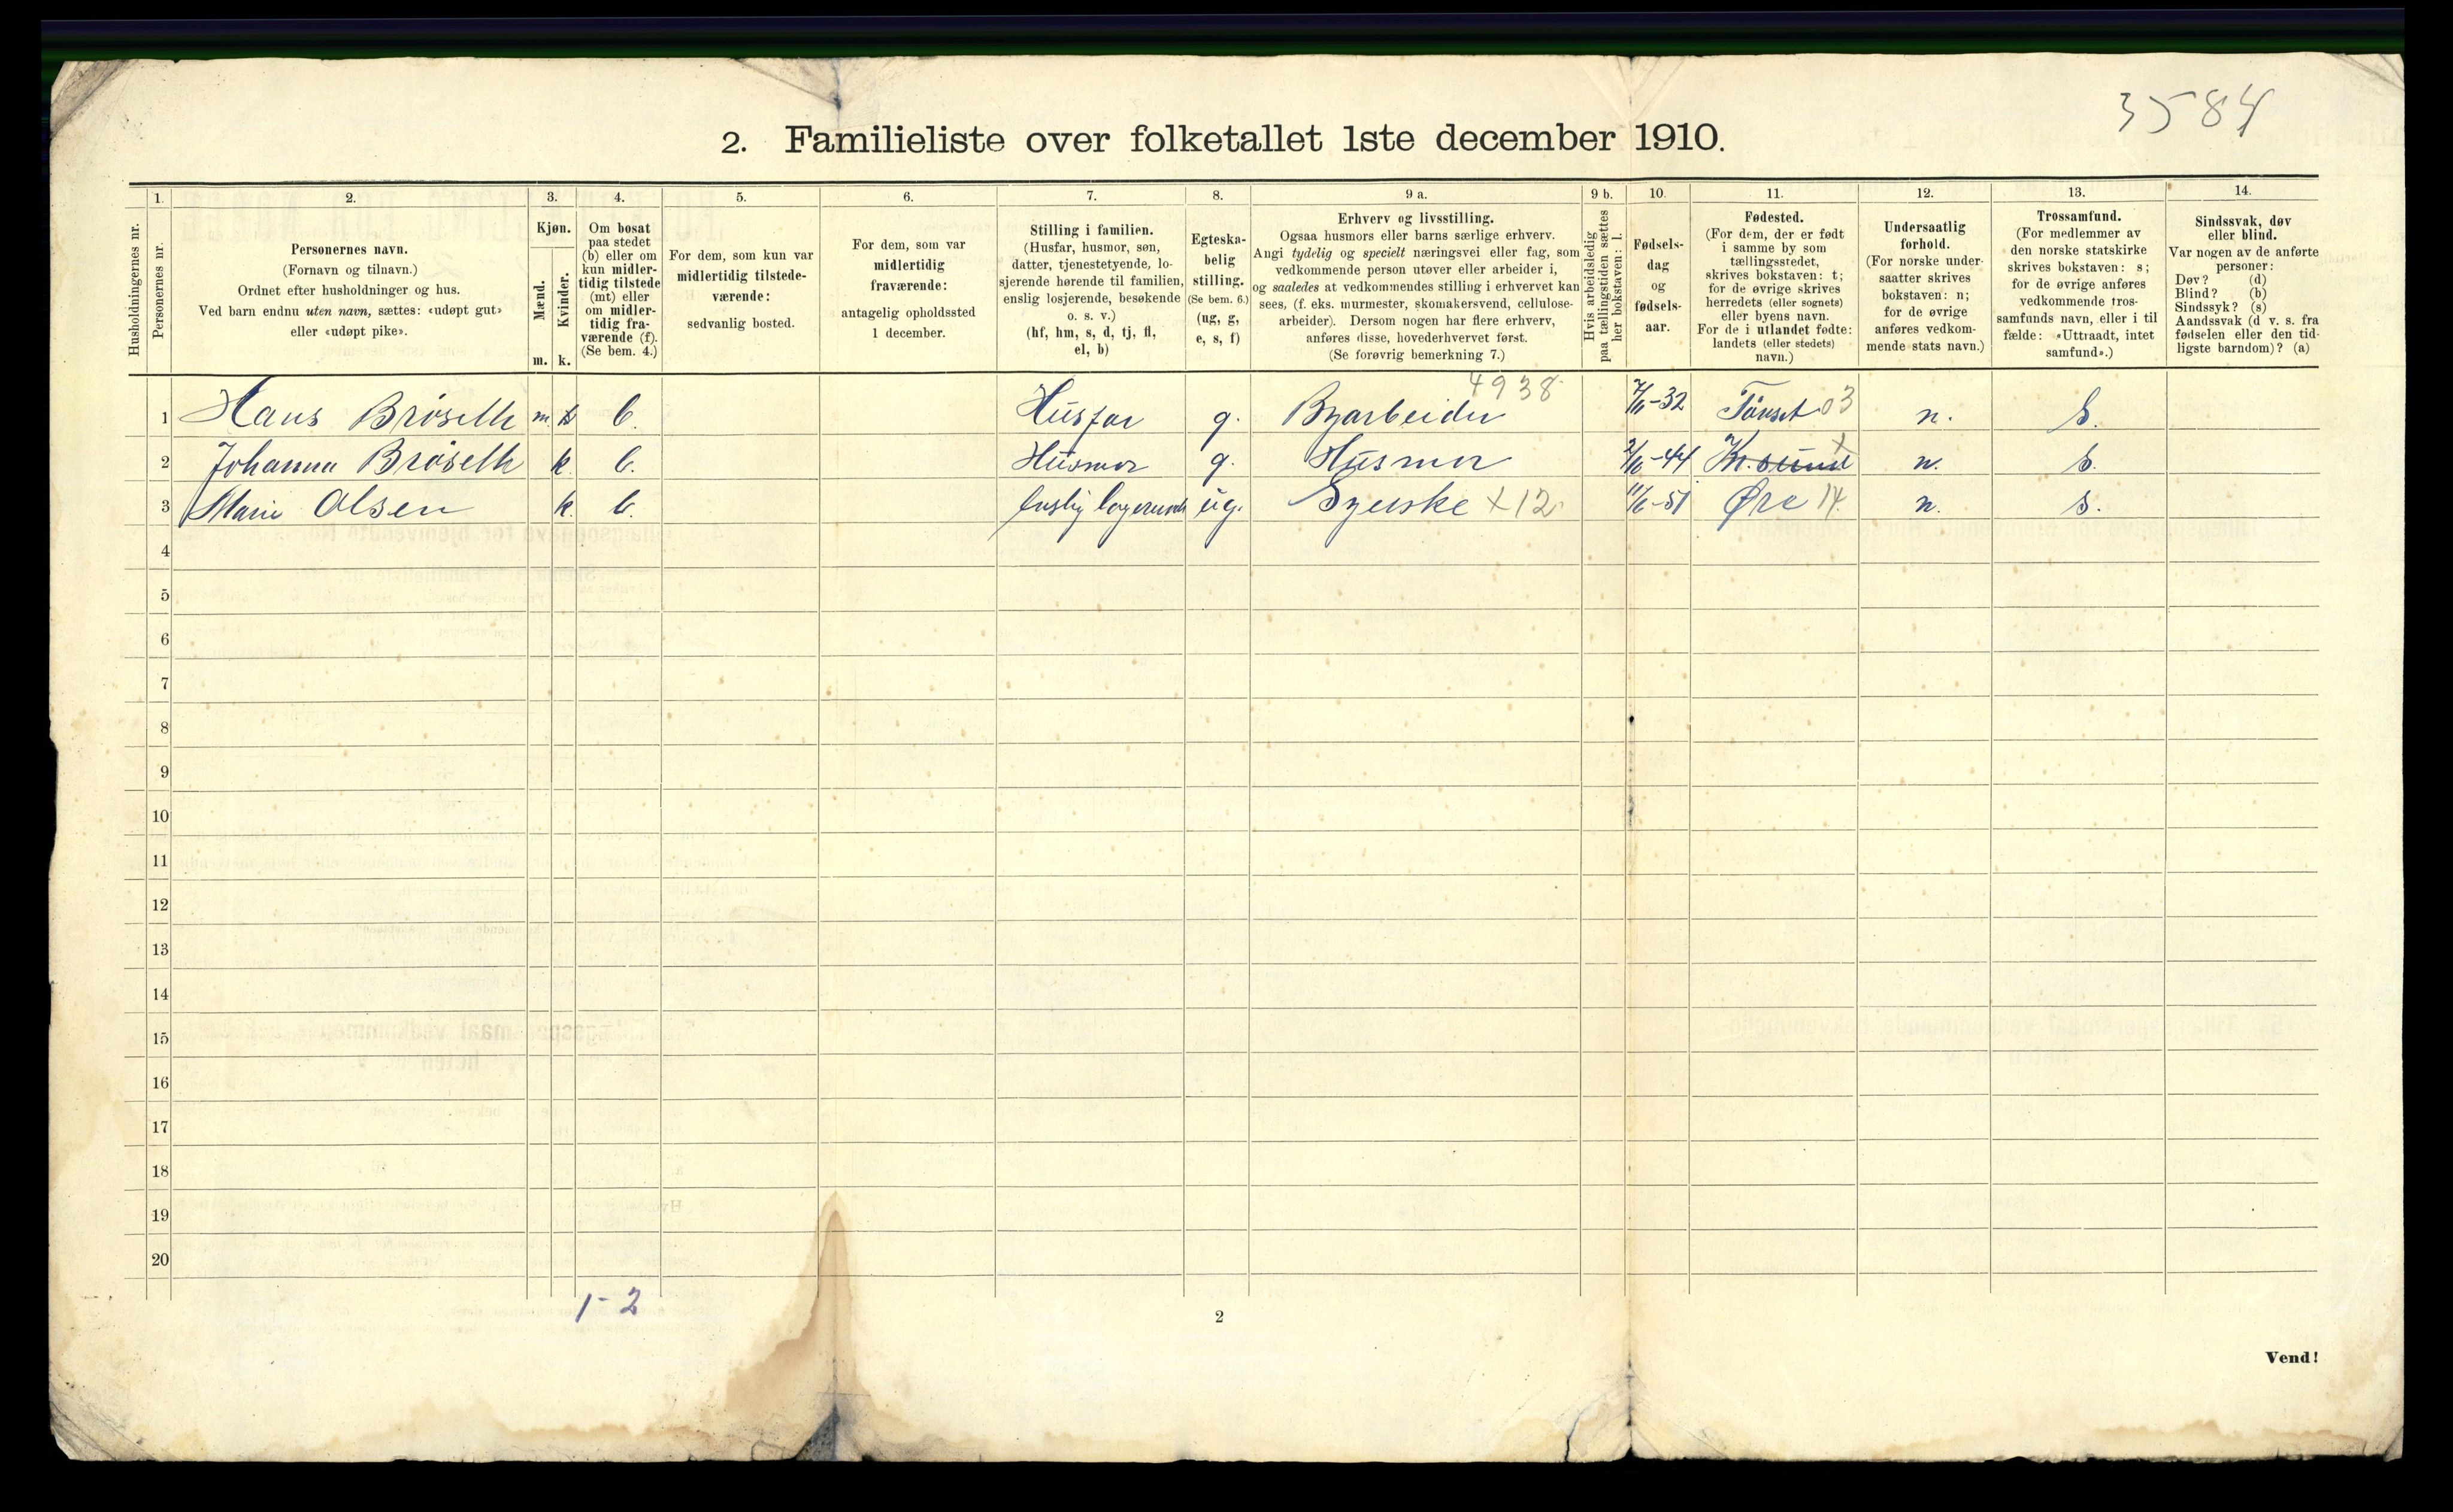 3584
2. Familieliste over folketallet 1ste december 1910.
Husholdningernes nr.
1.
Personernes nr.
2.
Personernes navn.
(Fornavn og tilnavn.)
Ordnet efter husholdninger og hus.
Ved barn endnu uten navn, sættes: «udøpt gut»
eller «udøpt pike».
3.
Kjøn.
Mænd.
Kvinder.
m. k.
4.
Om bosat
paa stedet
(b) eller om
kun midler-
tidig tilstede
(mt) eller
om midler-
tidig fra-
værende (f).
(Se bem. 4.)
5.
For dem, som kun var
midlertidig tilstede-
værende:
sedvanlig bosted.
6.
For dem, som var
midlertidig
fraværende:
antagelig opholdssted
1 december.
7.
Stilling i familien.
(Husfar, husmor, søn,
datter, tjenestetyende, lo-
sjerende hørende til familien,
enslig losjerende, besøkende
o. s. v.)
(hf, hm, s, d, tj, fl,
el, b)
8.
Egteska-
belig
stilling.
(Se bem. 6.)
(ug, g,
e, s, f)
9 a.
Erhverv og livsstilling.
Ogsaa husmors eller barns særlige erhverv.
Angi tydelig og specielt næringsvei eller fag, som
vedkommende person utøver eller arbeider i,
og saaledes at vedkommendes stilling i erhvervet kan
sees, (f. eks. murmester, skomakersvend, cellulose-
arbeider). Dersom nogen har flere erhverv,
anføres disse, hovederhvervet først.
(Se forøvrig bemerkning 7.)
9 b.
Hvis arbeidsledig
paa tællingstiden sættes
her bokstaven: l.
10.
Fødsels-
dag
og
fødsels-
aar.
11.
Fødested.
(For dem, der er født
i samme by som
tællingsstedet,
skrives bokstaven: t;
for de øvrige skrives
herredets (eller sognets)
eller byens navn.
For de i utlandet fødte:
landets (eller stedets)
navn.)
12.
Undersaatlig
forhold.
(For norske under-
saatter skrives
bokstaven: n;
for de øvrige
anføres vedkom-
mende stats navn.)
13.
Trossamfund.
(For medlemmer av
den norske statskirke
skrives bokstaven: s;
for de øvrige anføres
vedkommende tros-
samfunds navn, eller i til
fælde: «Uttraadt, intet
samfund».)
14.
Sindssvak, døv
eller blind.
Var nogen av de anførte
personer:
Døv? (d)
Blind? (b)
Sindssyk? (s)
Aandssvak (d v. s. fra
fødselen eller den tid-
ligste barndom)? (a)
4938
1 Hans Brøseth m. b. Husfar g. Byarbeider -32 03 n. s.
2 Johanna Brøseth k. b. Husmor g. Husmor -44 Kr.sund x n. s.
3 Marie Olsen k. b. Enslig ug. Syerske x12 11/6-51 Øre 14 n. s.
4
5
6
7
8
9
10
11
12
13
14
15
16
17
18
19
20
1-2
2
Vend!